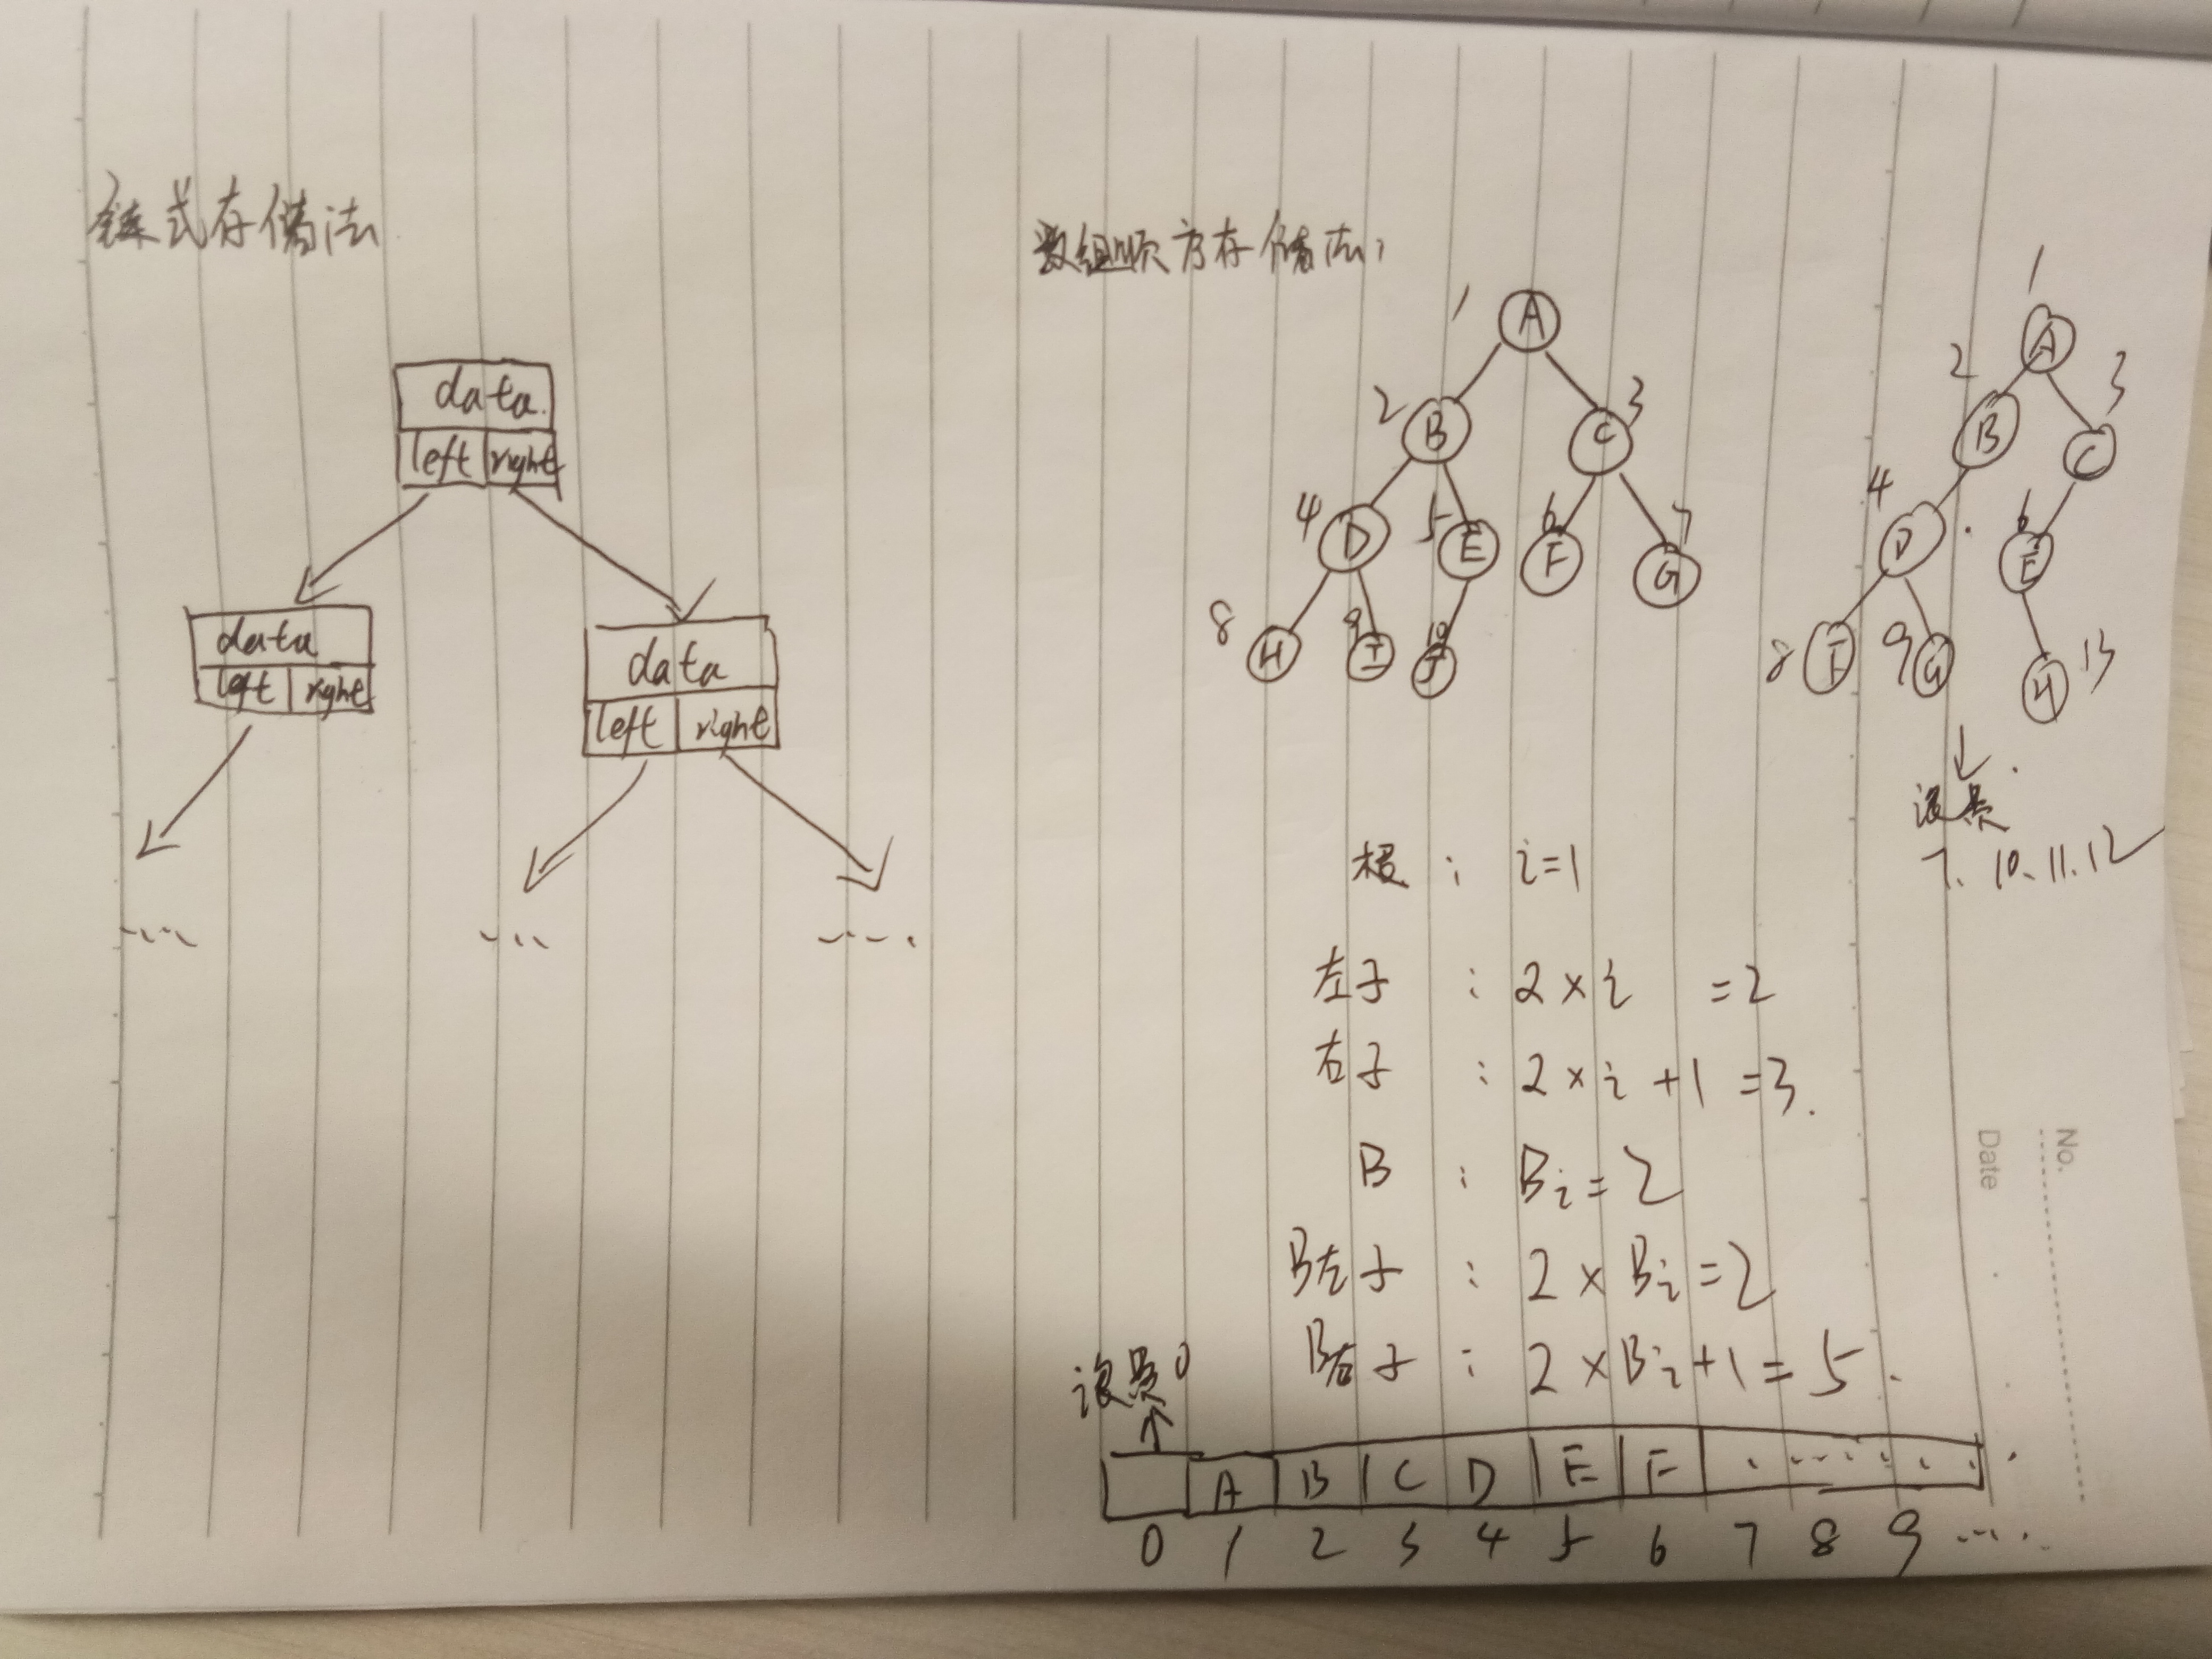 链式存储法
data
left right
data
left right
data
left right
.... .... ....
数组顺序存储法:
1 A
2 B C 3
4 D 5 E 6 F 7 G
8 H 9 I 10 J
1 A
2 B C 3
4 D 6 E
8 F 9 G H 13
浪费
7. 10. 11. 12
根 : i=1
左子 : 2×i =2
右子 : 2×i+1 =3.
B : Bi=2
B左子 : 2×Bi=2
B右子 : 2×Bi+1=5.
浪费0
A B C D E F ......
0 1 2 3 4 5 6 7 8 9 ....
No.
Date